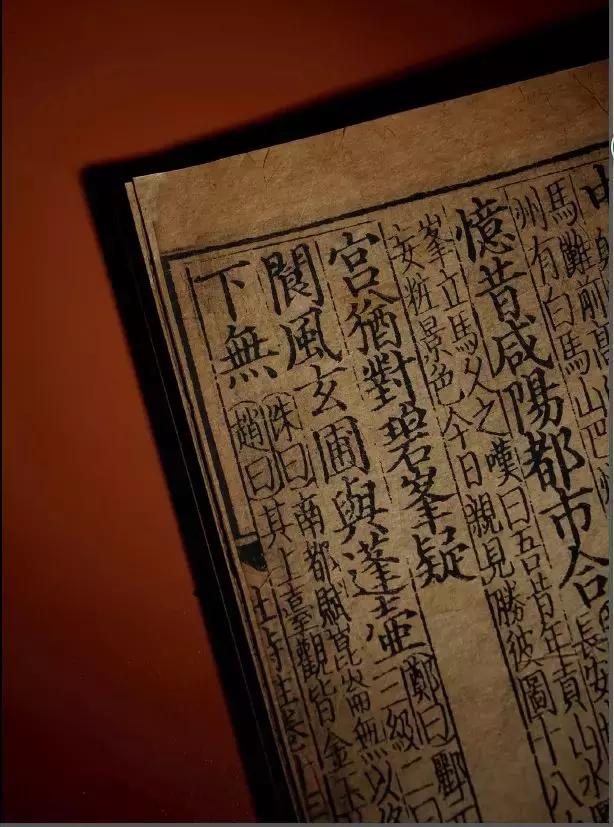 馬難前高山
州有白馬
憶昔咸陽都市合
長安
山水圖
峯立馬久之嘆曰吾昔年貢
妄粧景色今日親見勝彼圖十八
宮猶對碧峯疑
閬風玄圃與蓬壺
鄭曰酈
三級二曰
下無
洙曰南都賦崑崙無以
趙曰其上臺觀皆金玉